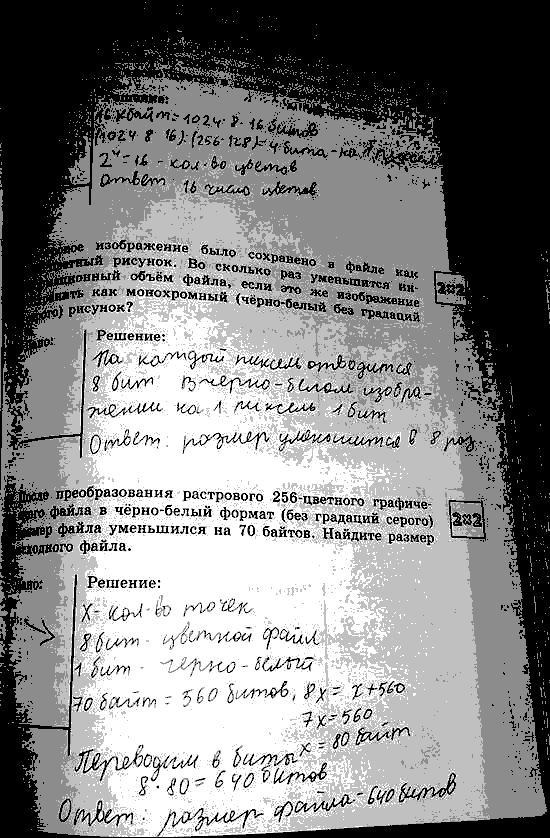 Решение:
16 кбайт = 1024·8·16 битов
(1024·8·16):(256·128)=4 бита - на 1
2⁴=16 - кол-во цветов
Ответ: 16 число цветов
изображение было сохранено в файле как
рисунок. Во сколько раз уменьшится ин-
объём файла, если это же изображение
как монохромный (чёрно-белый без градаций
рисунок?
Решение:
На каждый пиксель отводится
8 бит. В черно-белом изобра-
жении на 1 пиксель 1 бит
Ответ: размер уменьшится в 8 раз
2¤2
После преобразования растрового 256-цветного графиче-
файла в чёрно-белый формат (без градаций серого)
файла уменьшился на 70 байтов. Найдите размер
файла.
2¤2
Решение:
X- кол-во точек
8 бит - цветной файл
1 бит - черно-белый
70 байт = 560 битов, 8x = x+560
7x=560
x = 80 байт
Переводим в биты
8·80=640 битов
Ответ: размер файла - 640 битов